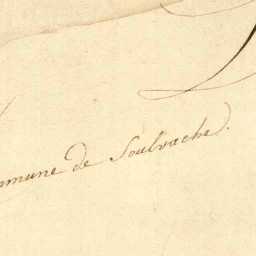 mmune de Soulvache.